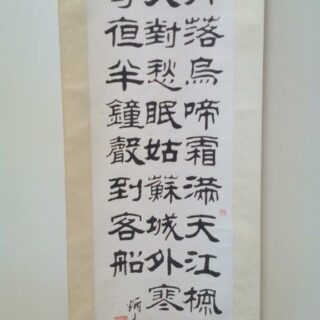 月落烏啼霜滿天江楓
火對愁眠姑蘇城外寒
寺夜半鐘聲到客船